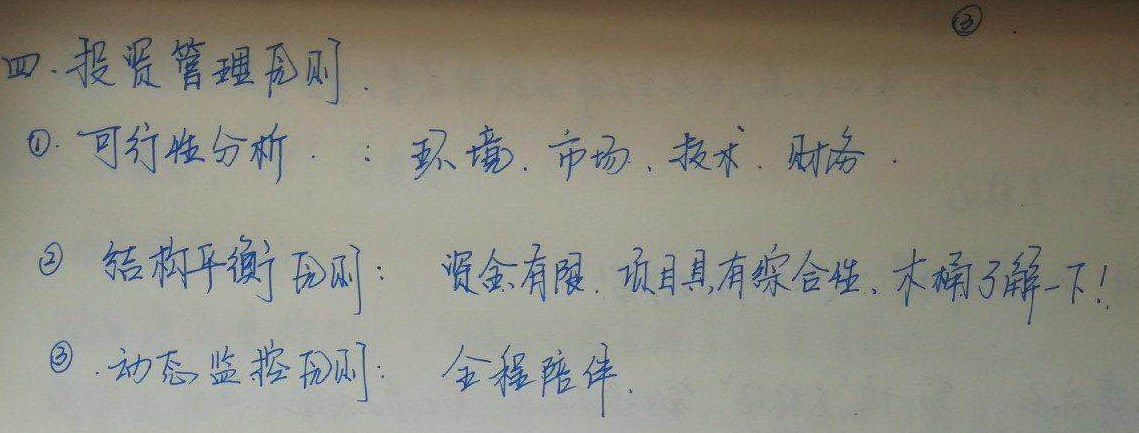 ③
四.投资管理原则.
①.可行性分析.:环境.市场、技术.财务.
②结构平衡原则:资金有限.项目具有综合性、木桶了解一下!
③.动态监控原则:全程陪伴.